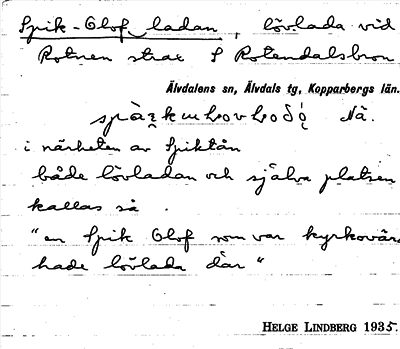 Spik-Olof ladan, lövlada vid
Rotnen strax S Rotendalsbron
Älvdalens sn, Älvdals tg, Kopparbergs län.
Nä.
i närheten av Spiktån
både lövladan och själva platsen
kallas så .
"en Spik Olof som var kyrkovär
hade lövlada där"
HELGE LINDBERG 1935.